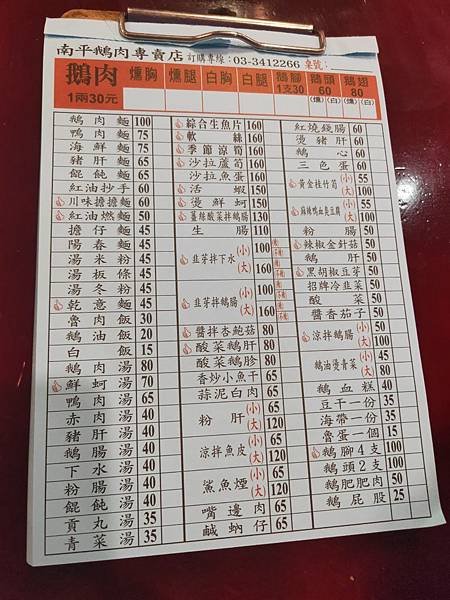 南平鵝肉專賣店 訂購專線：03-3412266 桌號：
鵝肉 1兩30元 燻胸 燻腿 白胸 白腿 鵝腳 1支30 鵝頭 60 (燻) (白) 鵝翅 80 (燻) (白)
鵝肉麵 100
鴨肉麵 75
海鮮麵 75
豬肝麵 65
餛飩麵 65
紅油抄手 60
川味擔擔麵 60
紅油燃麵 50
擔仔麵 45
陽春麵 45
湯米粉 45
湯板條 45
湯冬粉 45
乾意麵 45
魯肉飯 30
鵝油飯 20
白飯 15
鵝肉湯 80
鮮蚵湯 70
鴨肉湯 65
赤肉湯 40
豬肝湯 40
鵝腸湯 40
下水湯 40
粉腸湯 40
餛飩湯 40
貢丸湯 35
青菜湯 35
綜合生魚片 160
軟絲 160
季節涼筍 160
沙拉蘆筍 160
沙拉魚蛋 160
活蝦 150
燙鮮蚵 150
薑絲酸菜拌鵝腸 130
生腸 110
韭芽拌下水 (小) 100 (大) 160
韭芽拌鵝腸 (小) 100 (大) 160
醬拌杏鮑菇 80
酸菜鵝肝 80
酸菜鵝胗 80
香炒小魚干 80
蒜泥白肉 80
粉肝 (小) 65 (大) 120
涼拌魚皮 (小) 65 (大) 120
鯊魚煙 (小) 65 (大) 120
嘴邊肉 65
鹹蚋仔 65
紅燒錢腸 60
燙豬肝 60
鵝心 60
三色蛋 60
黃金桂竹筍 (小) 55 (大) 100
麻辣鴨血臭豆腐 (小) 55 (大) 100
粉腸 50
辣椒金針菇 50
鵝肝 50
黑胡椒豆芽 50
招牌冷韭菜 50
酸菜 50
醬香茄子 50
涼拌鵝腸 (小) 50 (大) 100
鵝油燙青菜 (小) 45 (大) 80
鵝血糕 40
豆干一份 35
海帶一份 35
魯蛋一個 15
鵝腳4支 100
鵝頭2支 100
鵝肥肥肉 50
鵝屁股 25